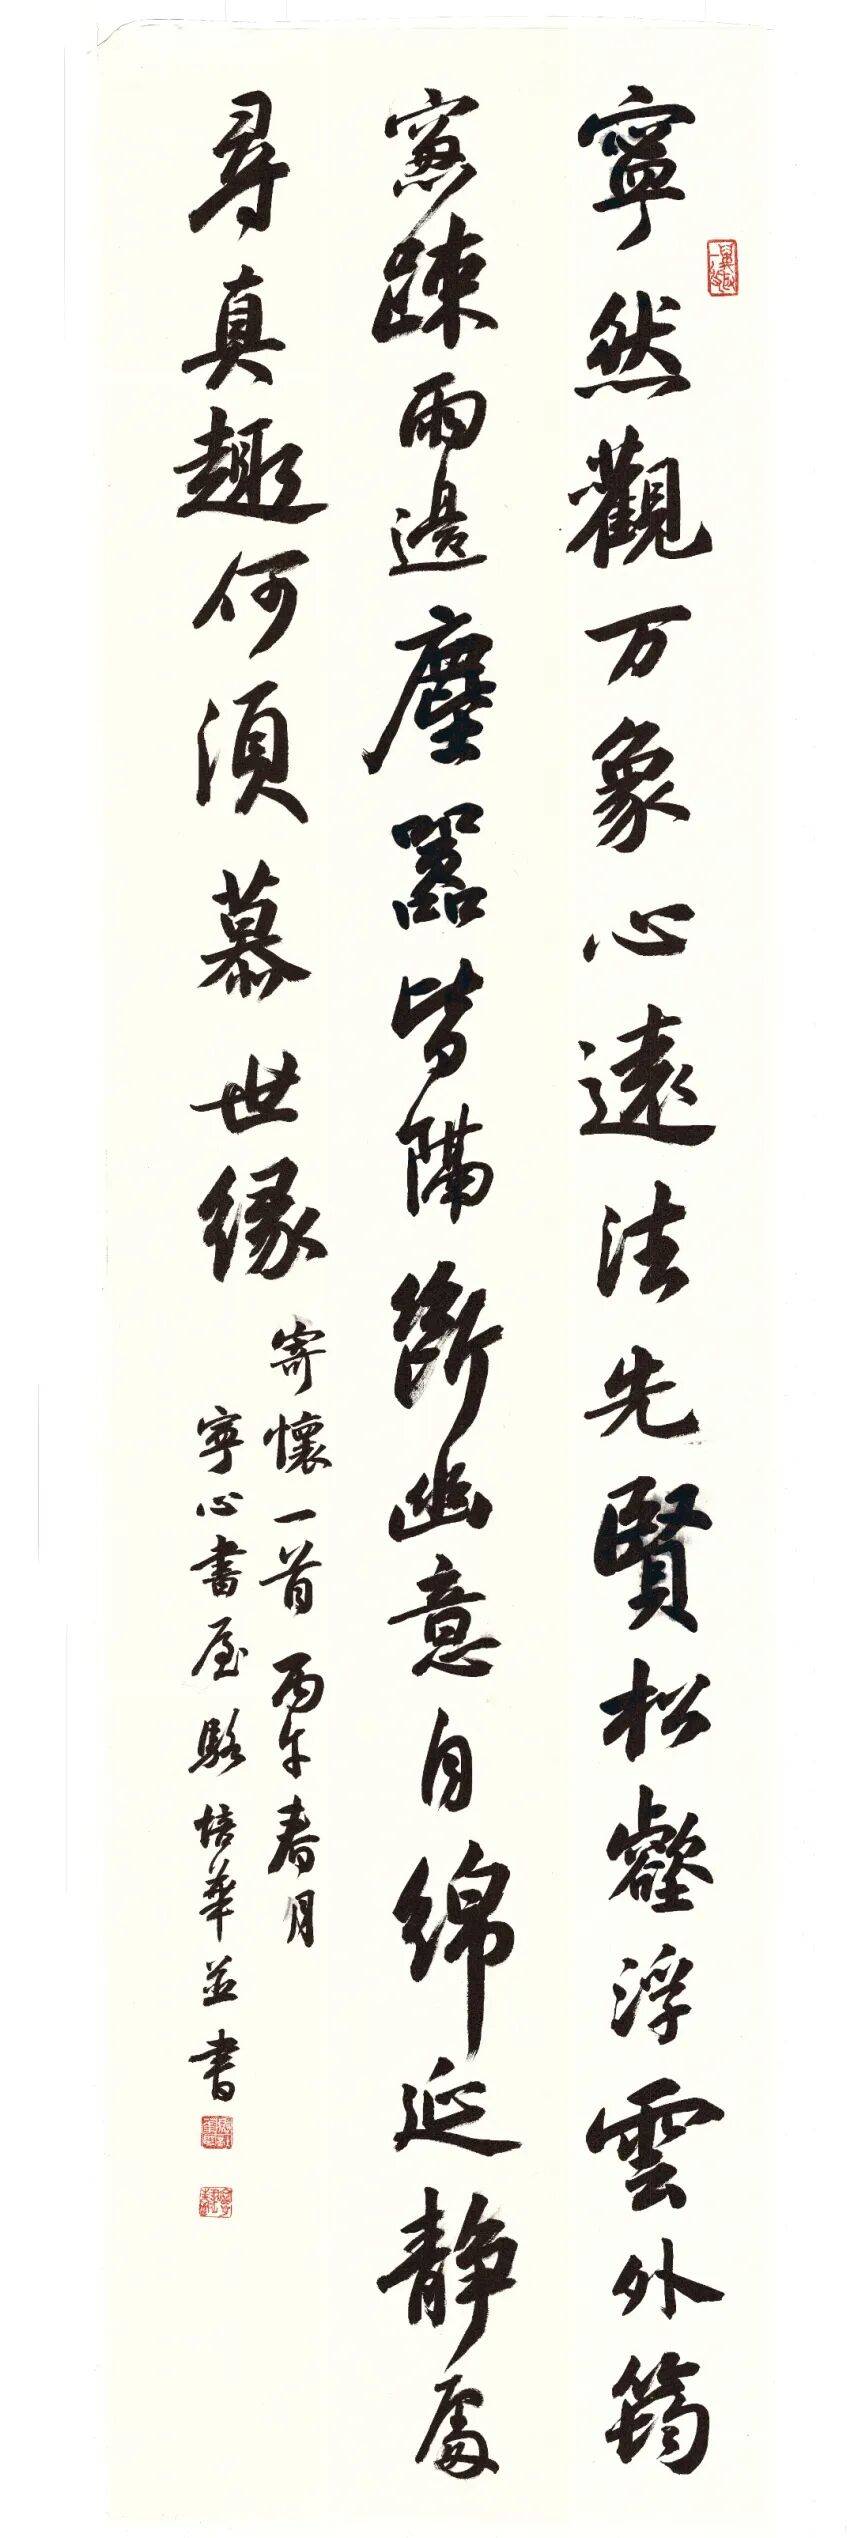 寧然觀万象心遠法先賢松壑浮雲外筠
窻踈雨邊塵嚣皆隔斷幽意自綿延静處
尋真趣何須慕世緣
寄懷一首丙午春月
寧心書屋駱培華並書